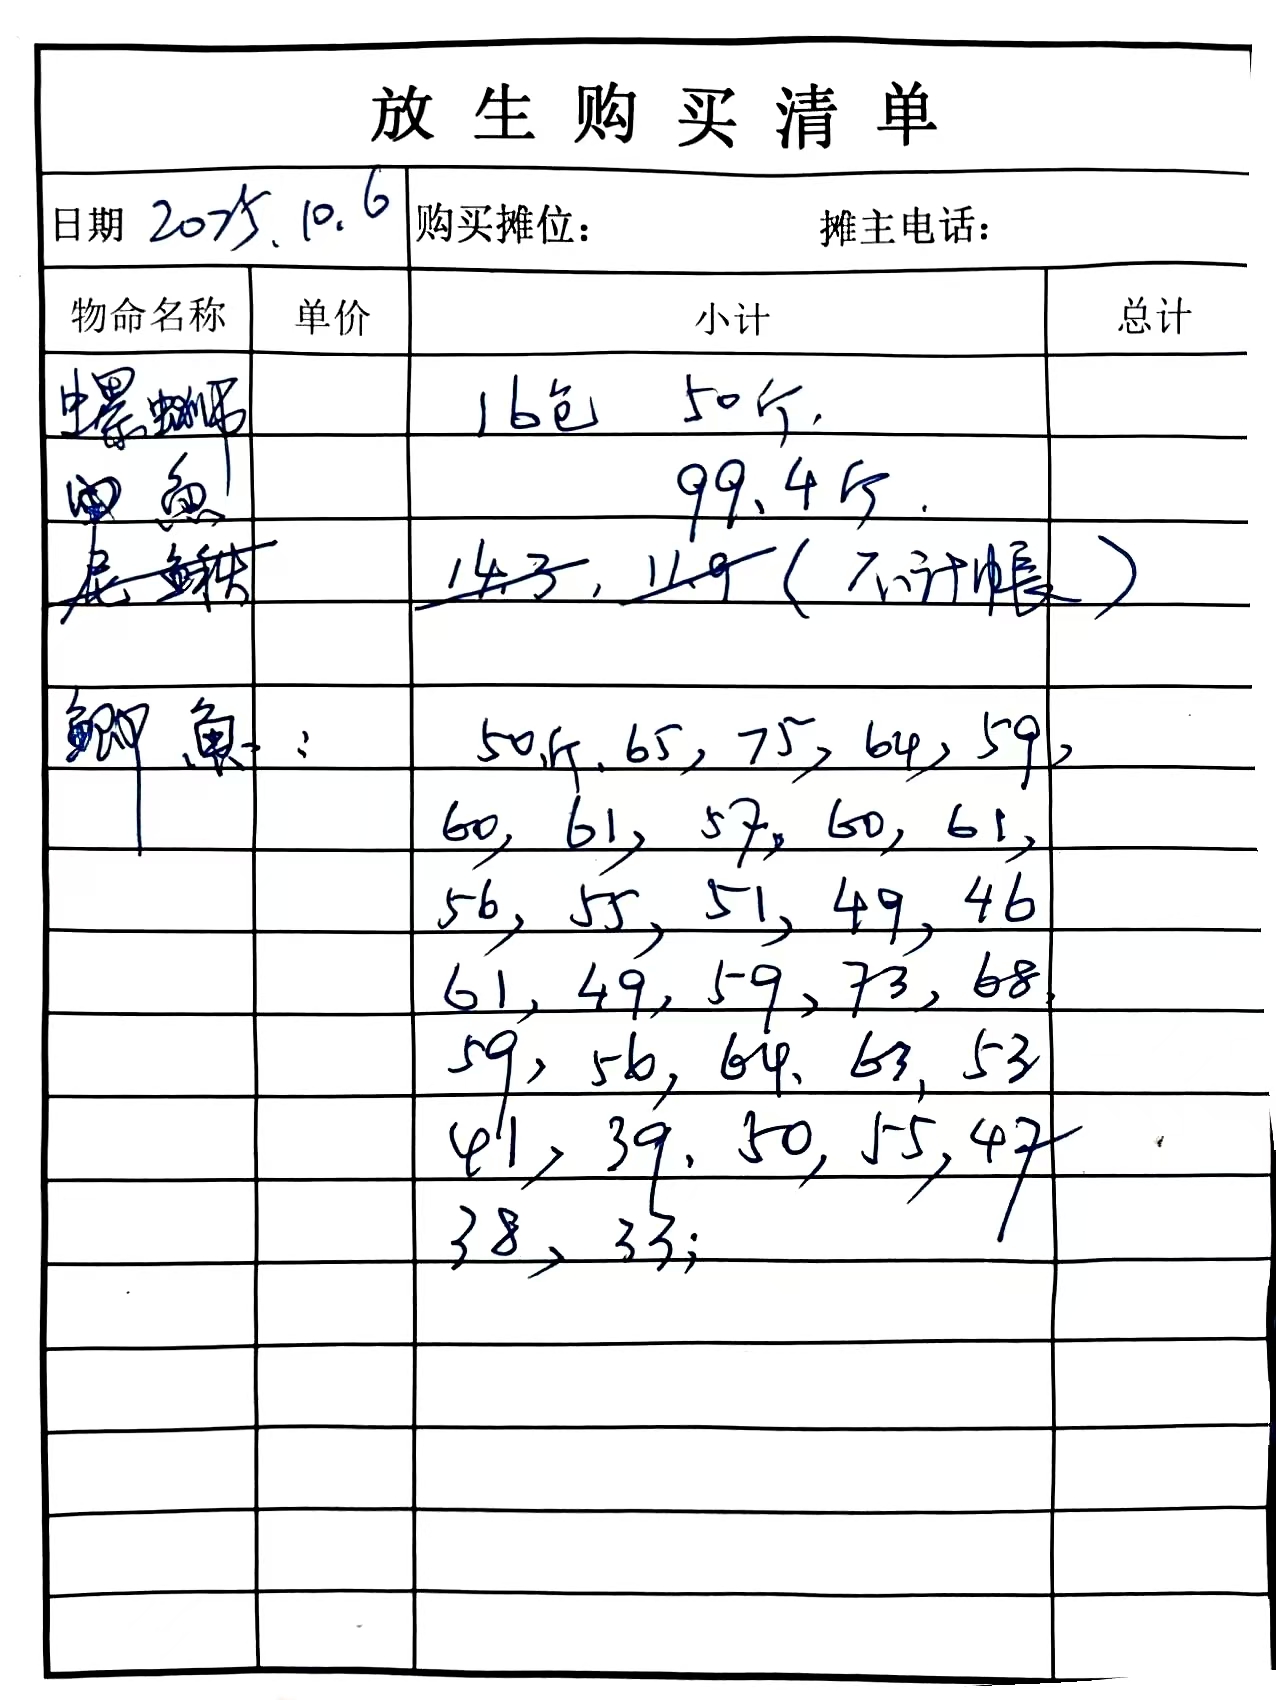 放生购买清单
日期 2025.10.6 购买摊位: 摊主电话:
物命名称 单价 小计 总计
螺蛳 16包 50斤.
魚 99.4斤.
尼鳅 14.3, 11.9 (不计帳)
鲫魚: 50斤、65, 75, 64, 59,
60, 61, 57, 60, 61,
56, 55, 51, 49, 46
61, 49, 59, 73, 68,
59, 56, 64, 63, 53
41, 39, 50, 55, 47
38, 33;